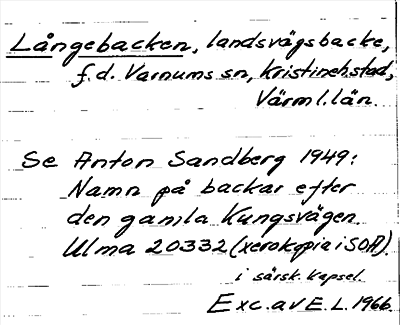 Långebacken, landsvägsbacke,
f.d. Varnums sn, Kristineh. stad,
Värml. län.
Se Anton Sandberg 1949:
Namn på backar efter
den gamla Kungsvägen.
Ulma 20332 (xerokopia i SOA).
i särsk. kapsel.
Exc. av E. L. 1966.